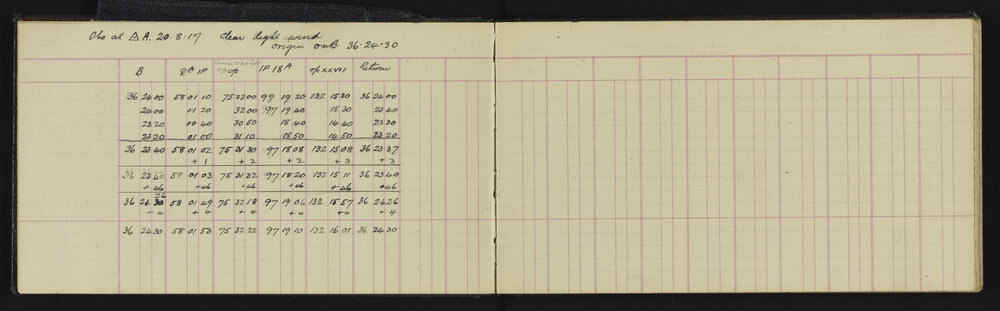 Obs at △ A. 20·8·17 Clear light wind
origin on B 36·24·30
B 8A 1P op 1P 18A op xxvii Return
36 24 00 58 01 10 75 32 00 97 19 20 132 15 30 36 24 00
24 00 01 20 32 00 97 19 40 15 30 23 40
23 20 00 40 30 50 18 40 14 40 23 30
23 20 01 00 31 10 18 50 14 50 23 20
36 23 40 58 01 02 75 31 30 97 18 08 132 15 08 36 23 37
+1 +2 +2 +3 +3
36 23 40 58 01 03 75 31 32 97 18 20 132 15 11 36 23 40
+46 +46 +46 +46 +46 +46
26
36 24 30 58 01 49 75 32 18 97 19 06 132 15 57 36 24 26
+4 +4 +4 +4 +4 +4
36 24 30 58 01 53 75 32 22 97 19 10 132 16 01 36 24 30